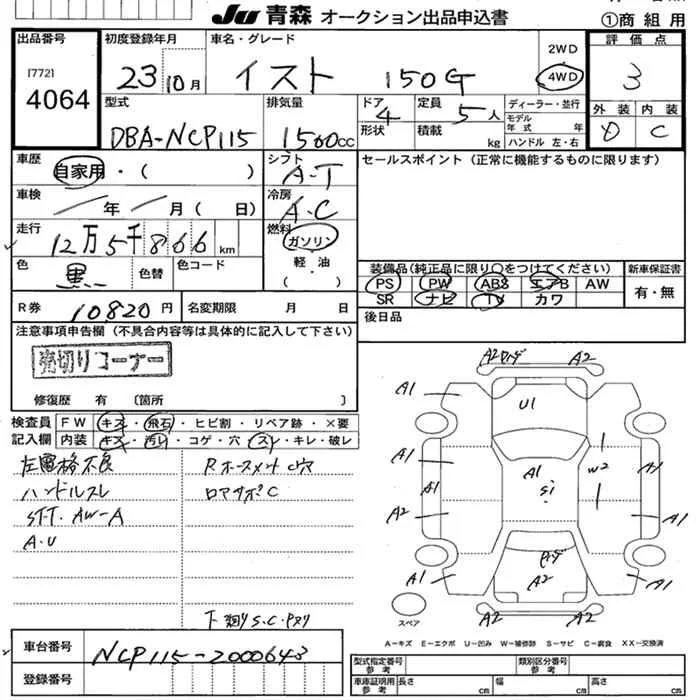 JU 青森 オークション出品申込書 ①商組用
出品番号 初度登録年月 車名・グレード 評価点
[772] 4064 23 10月 イスト 150G 2WD 4WD 3
型式 排気量 ドア 定員 ディーラー・並行 外装 内装
DBA-NCP115 1500cc 4 5人 モデル年式 年 D C
形状 積載 kg ハンドル 左・右
車歴 自家用・( ) シフト A-T セールスポイント(正常に機能するものに限ります)
車検 年 月( 日) 冷房 A・C
走行 12万5千866km 燃料 ガソリン
軽・油
( )
色 黒 色替 色コード
装備品(純正品に限り○をつけてください) 新車保証書
PS PW ABS エアB AW 有・無
SR ナビ TV カワ
R券 10820円 名変期限 月 日 後日品
注意事項申告欄(不具合内容等は具体的に記入して下さい)
売切りコーナー
修復歴 有 〔箇所 〕
検査員 FW キズ・飛石・ヒビ割・リペア跡・×要
記入欄 内装 キズ・汚レ・コゲ・穴・スレ・キレ・破レ
ハンドルスレ
ST-T. AW-A
A・U
S.C.
A2 A2
A1 U1 A1
A1 A1 W2 A1
A1 S1
A2 A1
A1 A2 A1
A2 A2
スペア
A-キズ E-エクボ U-凹み W-補修跡 S-サビ C-腐食 XX-交換済
車台番号 NCP115-2000643
登録番号
型式指定番号 参考 類別区分番号 参考
車庫証明用 参考 長さ cm 幅 cm 高さ cm